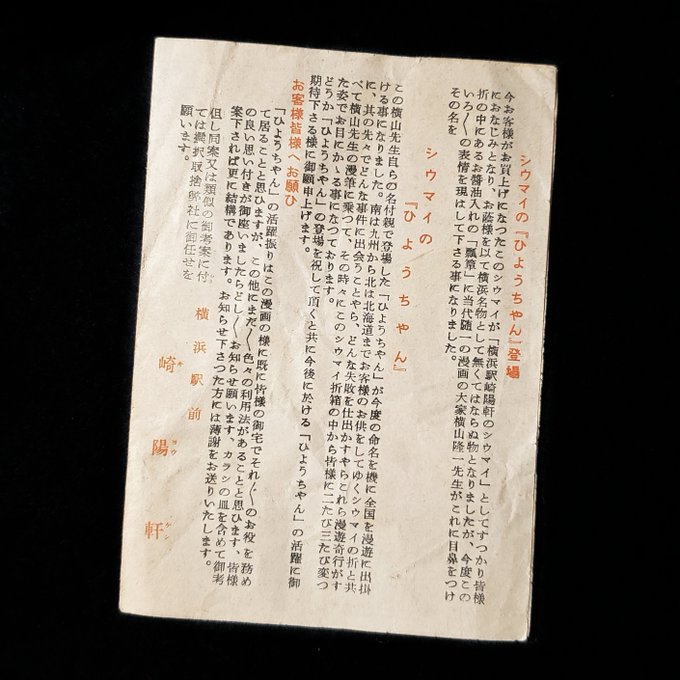 シウマイの『ひようちやん』登場
今お客様がお買上げになつたこのシウマイが「横浜駅崎陽軒のシウマイ」としてすつかり皆様
におなじみとなり、お蔭様を以て横浜名物として無くてはならぬ物となりましたが、今度この
折の中にあるお醬油入れの「瓢簞」に当代随一の漫画の大家横山隆一先生がこれに目鼻をつけ
いろ〱の表情を現はして下さる事になりました。
その名を
シウマイの
『ひようちやん』
この横山先生自らの名付親で登場した「ひようちやん」が今度の命名を機に全国を漫遊に出掛
ける事になりました。南は九州から北は北海道までお客様のお供をしてゆくシウマイの折と共
に、其の先々でどんな事件に出会うことやら、どんな失敗を仕出かすやらこれら漫遊奇行がす
べて横山先生の漫筆に乗つて、その時々にこのシウマイ折箱の中から皆様に二たび三たび変つ
た姿でお目にかゝる事になつております。
どうか「ひようちやん」の登場を祝して頂くと共に今後に於ける「ひようちやん」の活躍に御
期待下さる様に御願申上げます。
お客様皆様へお願ひ
「ひようちやん」の活躍振りはこの漫画の様に既に皆様の御宅でそれ〲のお役を務め
て居ることと思ひますが、この他にまだ〱色々の利用法があることと思ひます、皆様
の良い思い付きが御座いましたらどし〱お知らせ願います、カラシの皿を含めて御考
案下されば更に結構であります。お知らせ下さつた方には薄謝をお送りいたします。
但し同案又は類似の御考案に付
ては選択取捨弊社に御任せを
願います。
横浜駅前
崎陽軒
キヨウケン